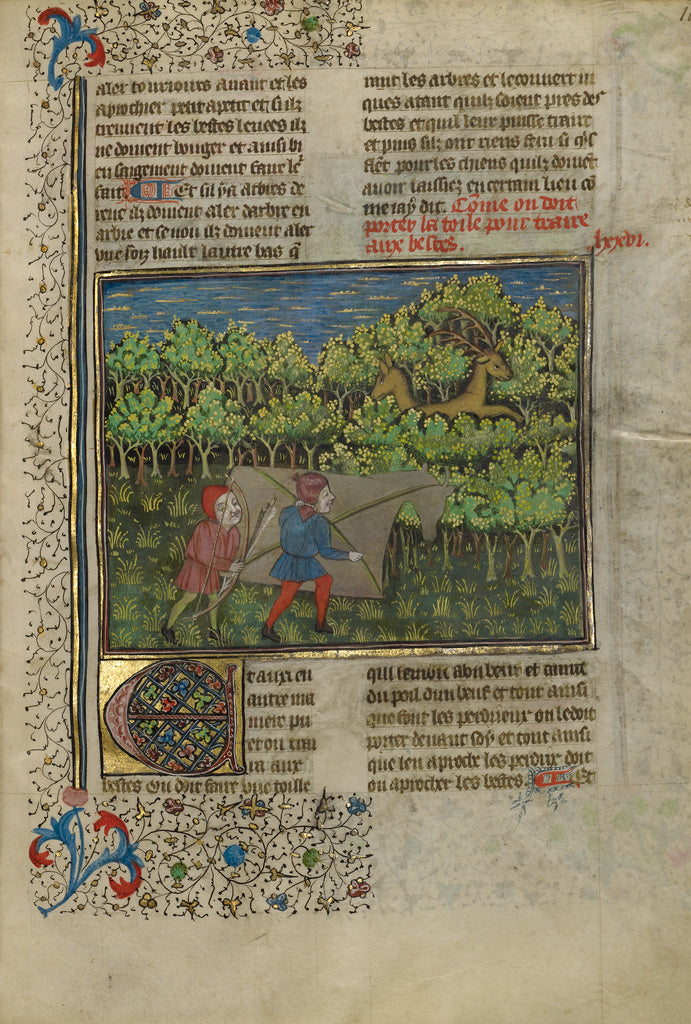 aler tousiours auant et les
aprochier petit a petit et silz
treuuent les bestes leuees ilz
ne doiuent bouger et ainsi
en sargement doiuent faire le
fait Et sil ya arbres de
uent ilz doiuent aler darbre en
arbre et se non ilz doiuent aler
vne fois hault lautre bas q̄
mut les arbres et le couuert iu
ques atant quilz soient pres des
bestes et quil leur puisse traire
et puis silz ont riens feru si
pour les chiens quilz doiuēt
auoir laissiez en certain lieu cō
me iay dit. Cōme on doit
porter la toile pour traire
aux bestes. lxxvi.
Et aussi en
autre ma
niere pu
et on trai
re aux
bestes On doit faire vne toille
qui semble a bu beuf et
du poil dun beuf et tout ainsi
que font les perdrieux on le doit
porter deuant soy et tout ainsi
que len aproche les perdrix doit
on aprochier les bestes. Et